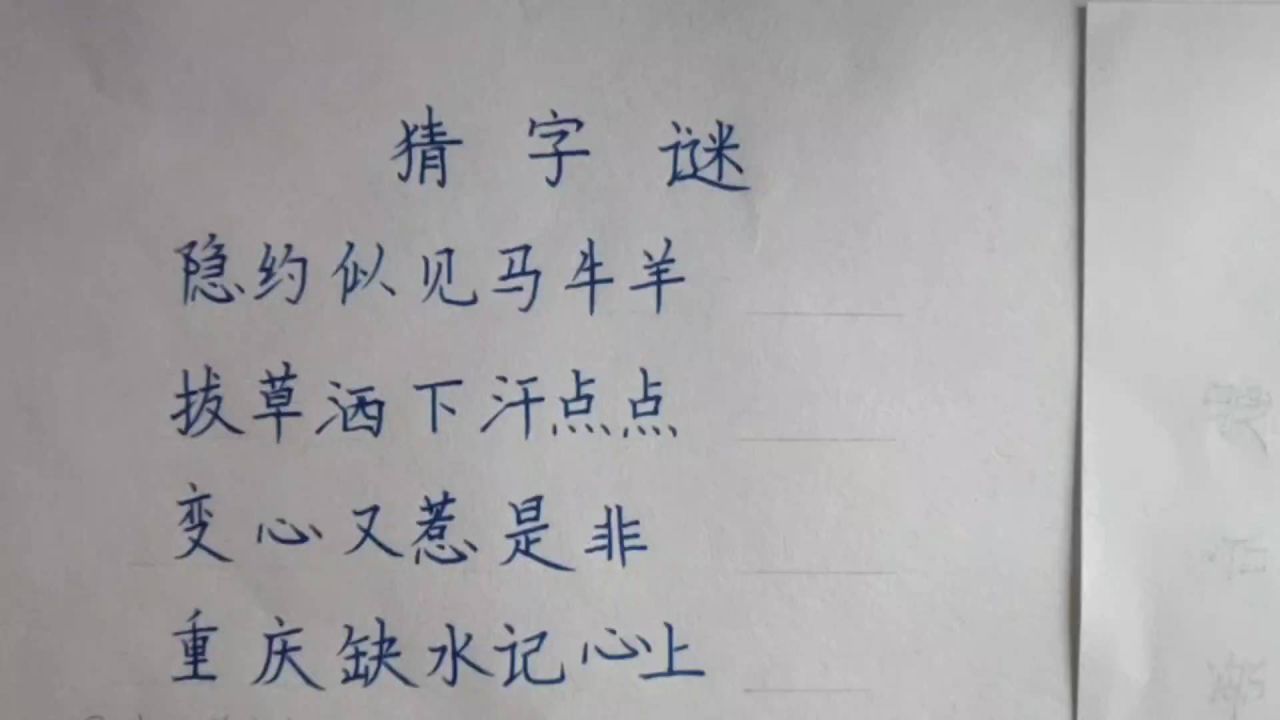 猜字谜
隐约似见马牛羊
拔草洒下汗点点
变心又惹是非
重庆缺水记心上